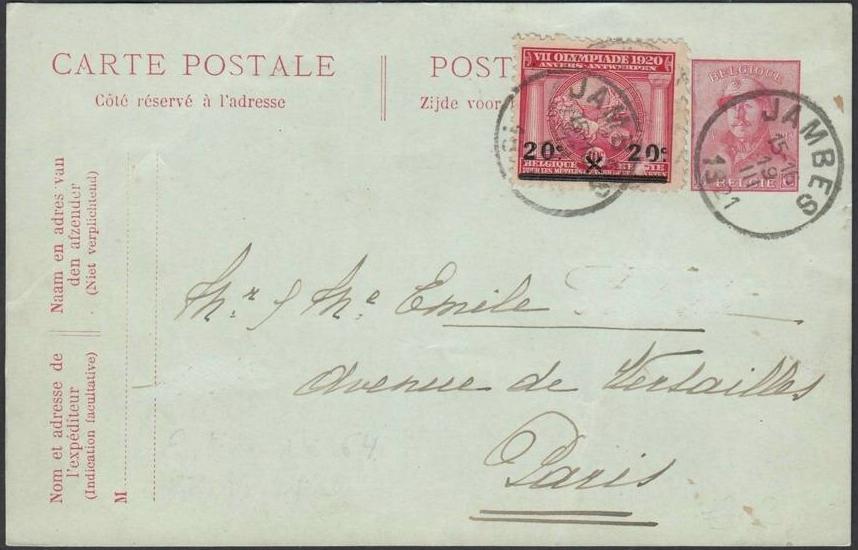 CARTE POSTALE
Côté réservé à l'adresse
POST
Zijde voor
VII OLYMPIADE 1920
ANVERS-ANTWERPEN
20c 20c
BELGIQUE BELGIE
JAMBES
BELGIQUE
BELGIË
JAMBES
15-16
19 III
1921
Naam en adres van
den afzender
(Niet verplichtend)
Nom et adresse de
l'expéditeur
(Indication facultative)
M
Mr & Me Emile
Avenue de Versailles
Paris